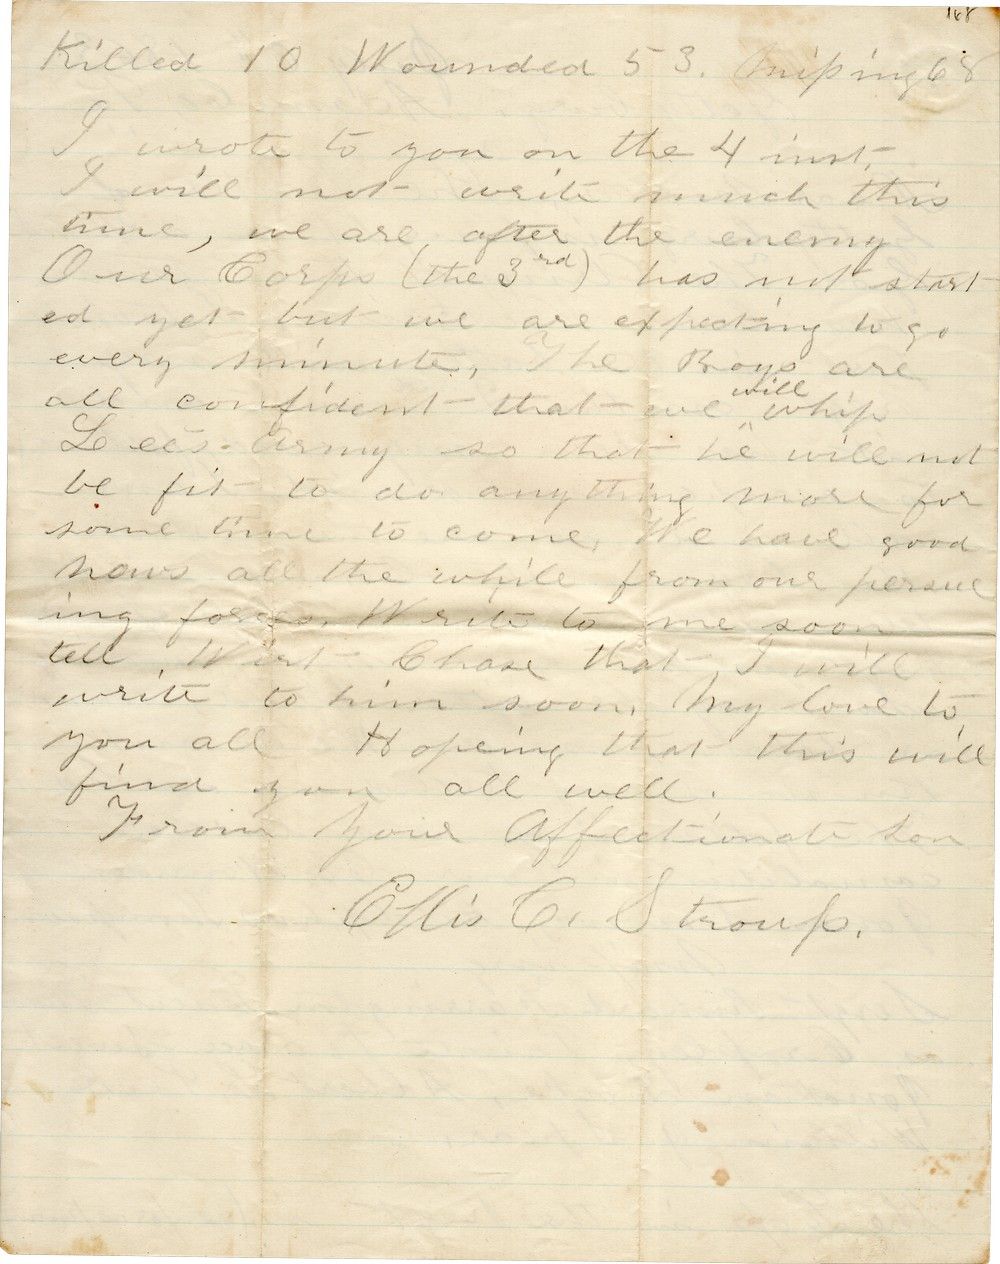 168
Killed 10 Wounded 53. Mising 68
I wrote to you on the 4 inst.
I will not write much this
time, we are after the enemy
Our Corps (the 3rd) has not start
ed yet but we are expecting to go
every minute, The Boys are
all confident that we will whip
Lee's Army so that he will not
be fit to do any thing more for
some time to come. We have good
naws all the while from our persue
ing forces. Write to me soon
tell Wert Chase that I will
write to him soon. My love to
you all Hopeing that this will
find you all well.
From Your Affectionate Son
Ellis C. Strouss.